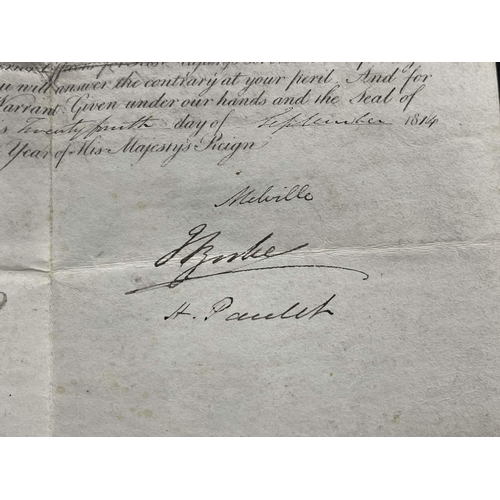 ue will answer the contrary at your peril. And for
Warrant Given under our hands and the Seal of
Twenty fourth day of September 1814
Year of His Majesty's Reign
Melville
J Yorke
H. Paulet